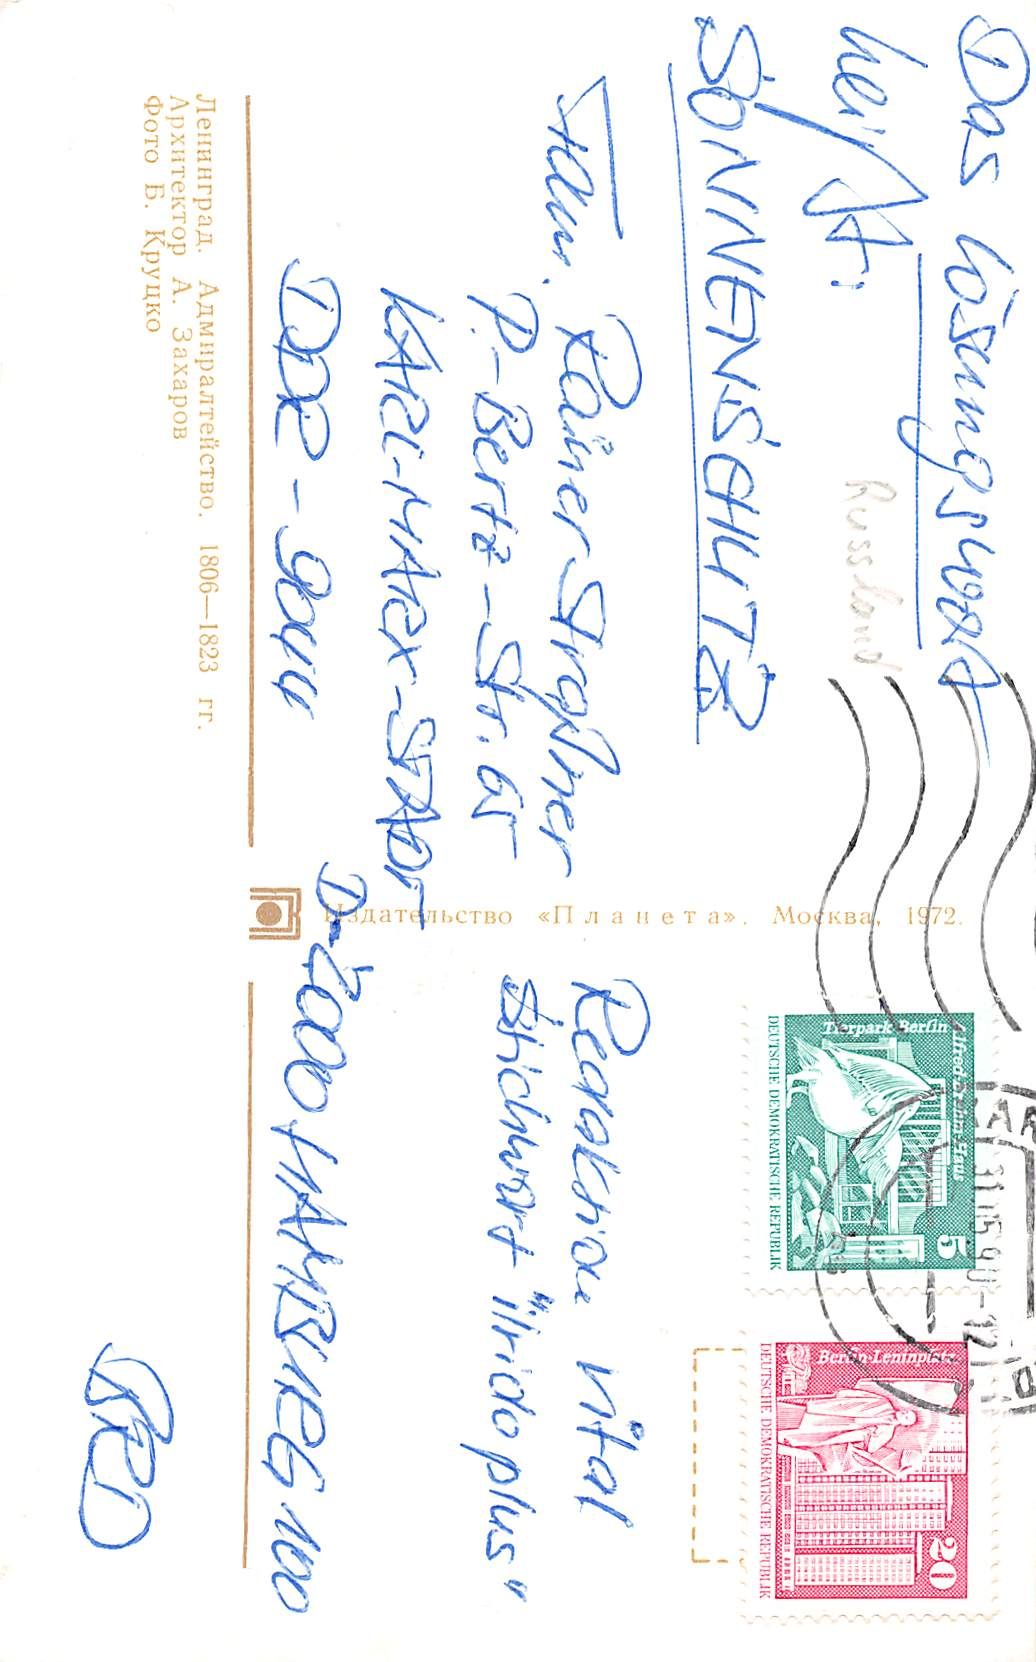 Das Lösungswort
heißt:
SONNENSCHUTZ
Fam. Rainer Strassner
P.-Bertz-Str. 65
KARL-MARX-STADT
DDR - 9044
Ленинград. Адмиралтейство. 1806—1823 гг.
Архитектор А. Захаров
Фото Б. Круцко
Russland
Издательство «Планета». Москва, 1972.
Tierpark Berlin
Alfred-Brehm-Haus
5
DEUTSCHE DEMOKRATISCHE REPUBLIK
KAR
31.05.90-12
Berlin-Leninplatz
20
DEUTSCHE DEMOKRATISCHE REPUBLIK
Redaktion Vital
Stichwort "Iridoplus"
D-2000 HAMBURG 100
BRD